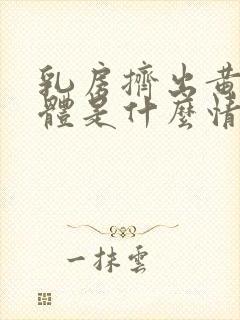 乳房擠出黃
體是什麼情
一抹雲